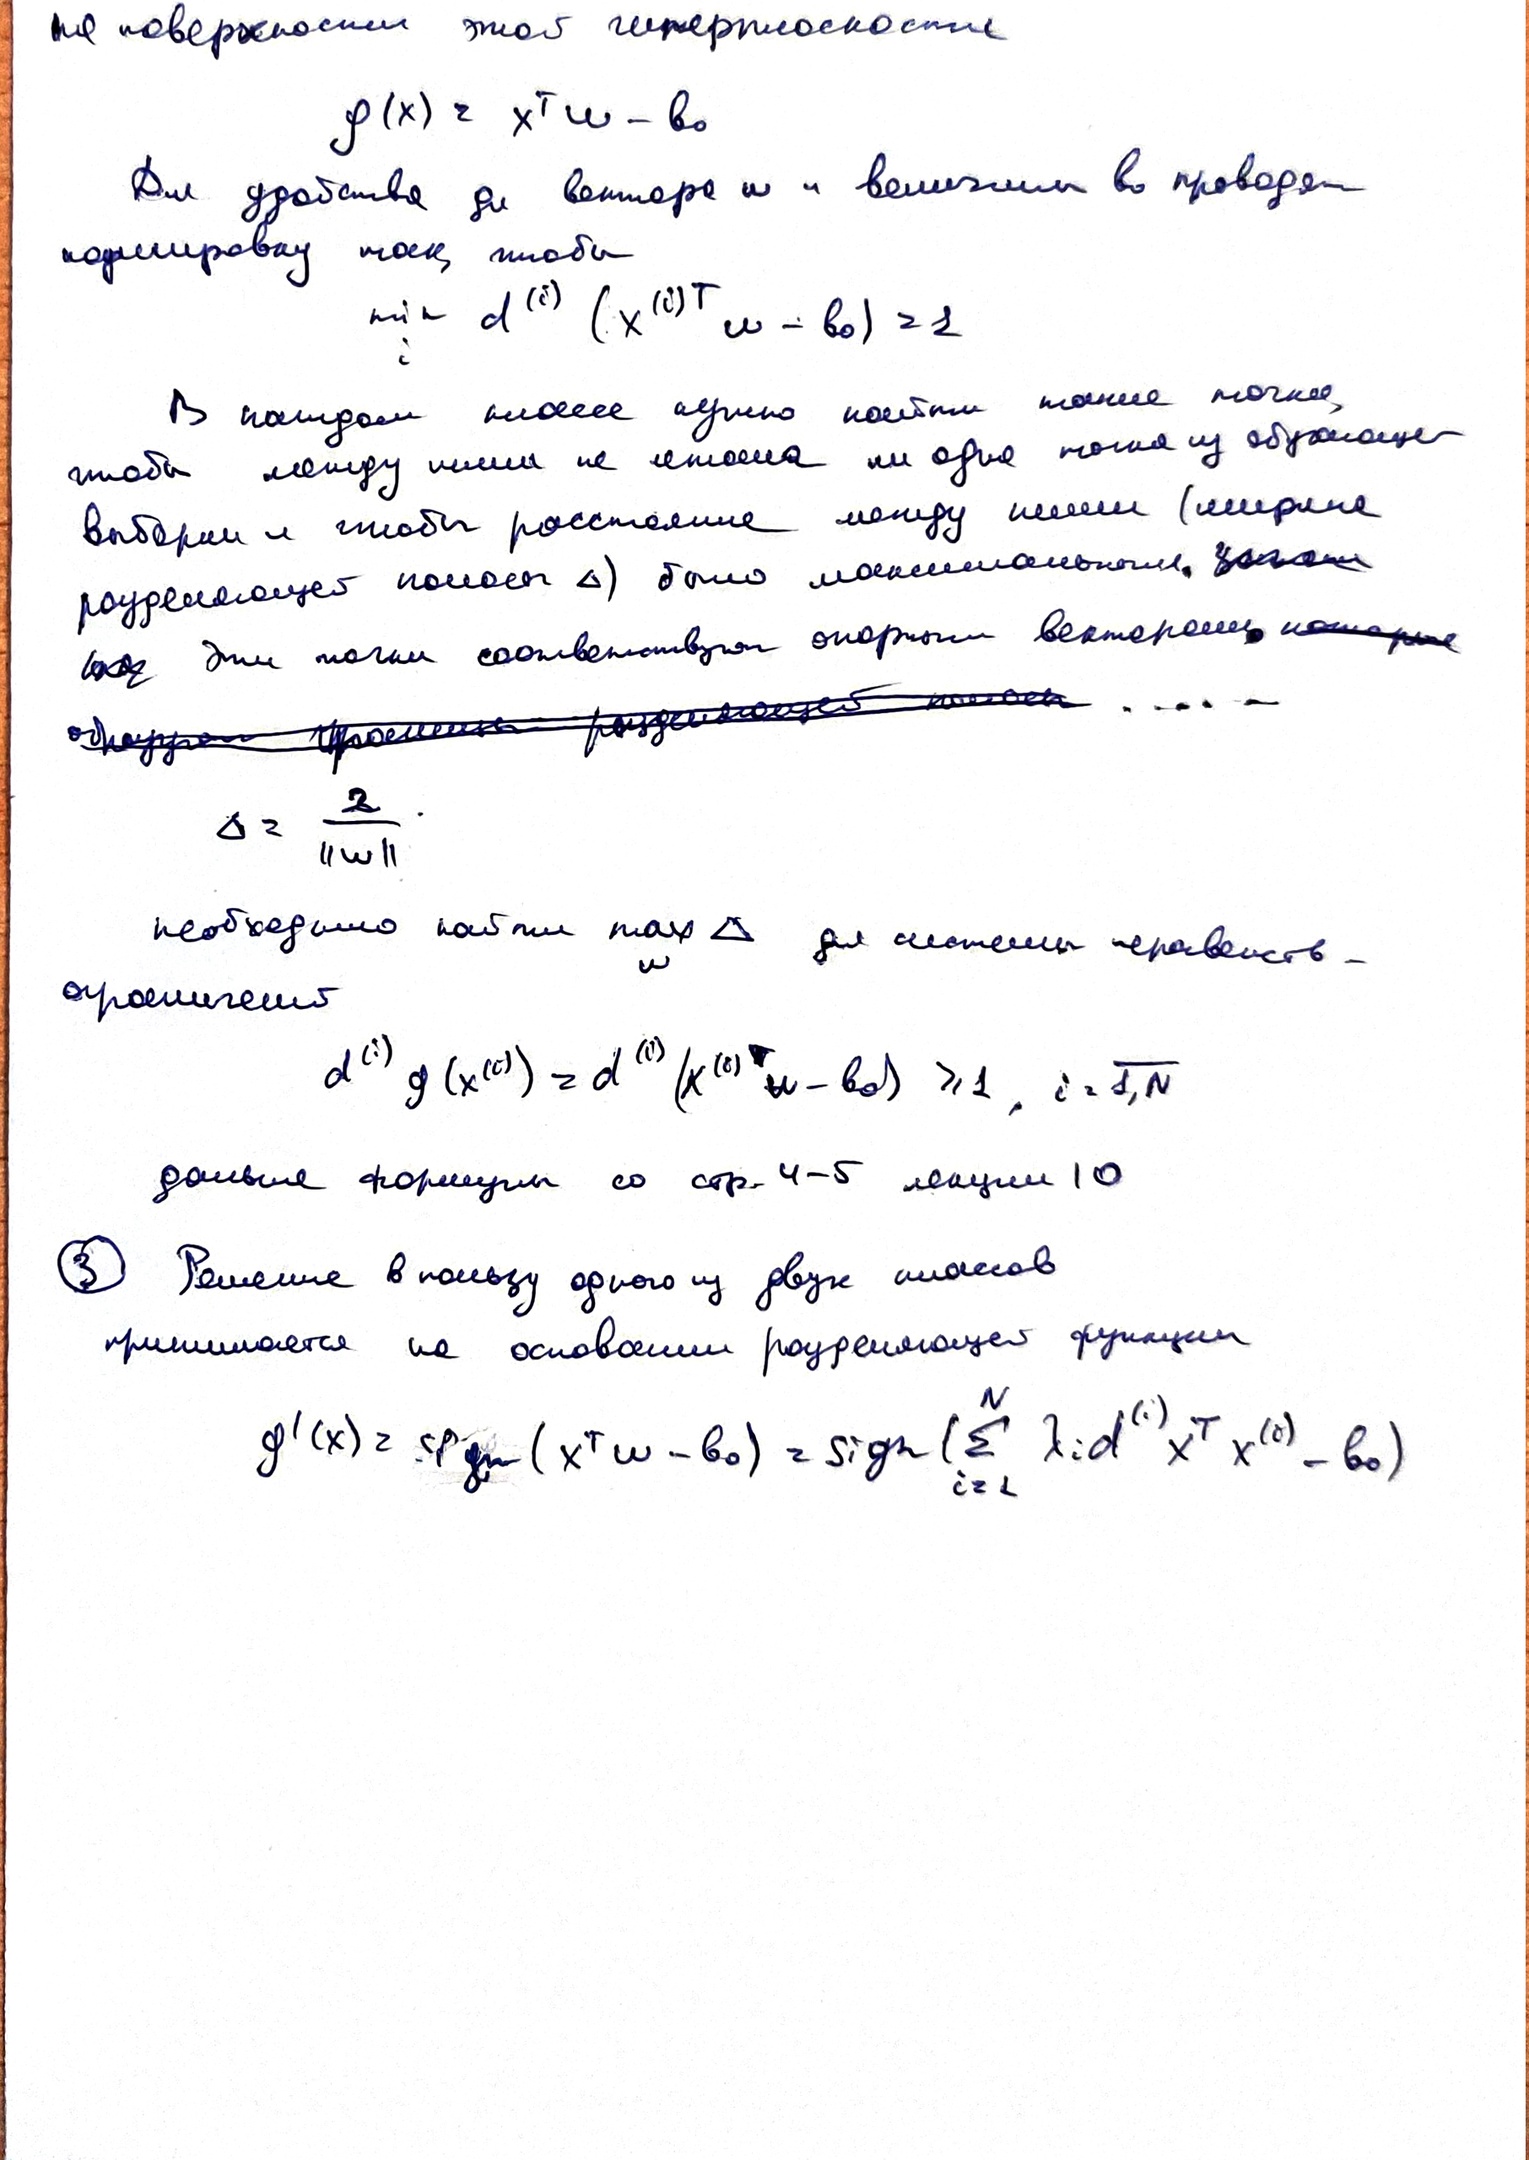 на поверхности этой гиперплоскости
g(x) = xᵀw – b₀
Для удобства для вектора w и величины b₀ проводят
нормировку так, чтобы
min d⁽ⁱ⁾ (x⁽ⁱ⁾ᵀ w – b₀) = 1
i
В каждом классе нужно найти такие точки,
чтобы между ними не лежала ни одна точка из обучающей
выборки и чтобы расстояние между ними (ширина
разделяющей полосы Δ) было максимальным.
Эти точки соответствуют опорным векторам, которые
образуют границы разделяющей полосы . . . . –
Δ = 2 / ||w||
необходимо найти max Δ для системы неравенств –
w
ограничений
d⁽ⁱ⁾ g(x⁽ⁱ⁾) = d⁽ⁱ⁾ (x⁽ⁱ⁾ᵀ w – b₀) ⩾ 1, i = 1,N
дальше формулы со стр. 4–5 лекции 10
③ Решение в пользу одного из двух классов
принимается на основании разделяющей функции
g'(x) = sign (xᵀw – b₀) = sign (∑ᵢ₌₁ᴺ λᵢ d⁽ⁱ⁾ xᵀ x⁽ⁱ⁾ – b₀)